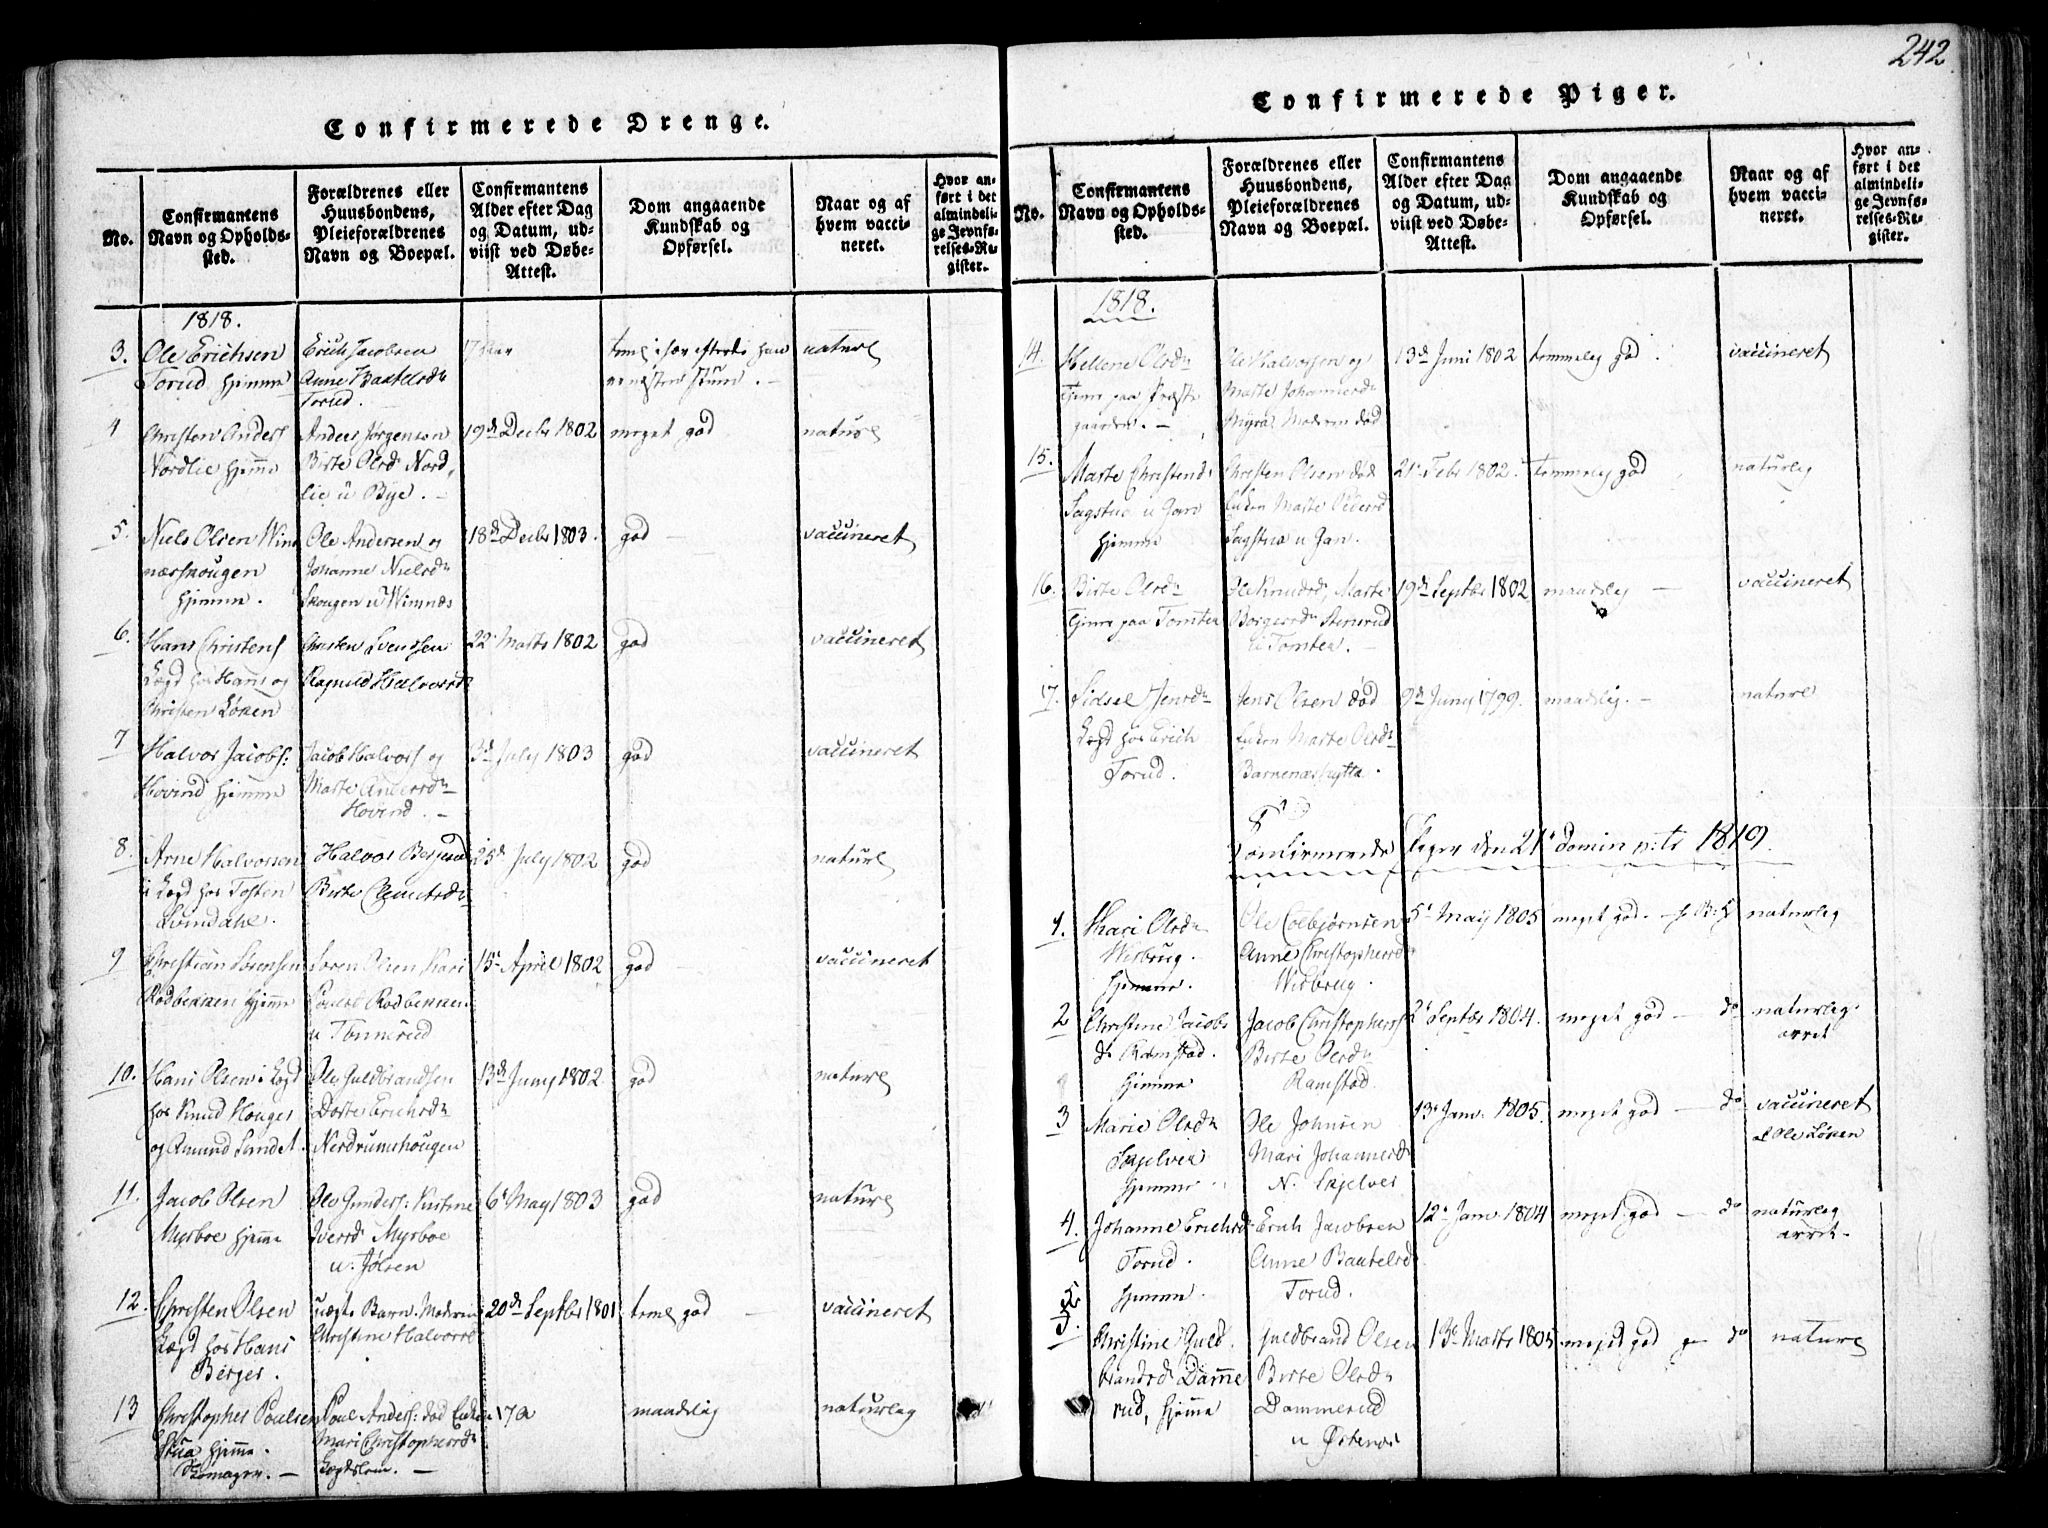 242
Confirmerede Drenge.
No.
Confirmantens
Navn og Opholds-
sted.
Forældrenes eller
Huusbondens,
Pleieforældrenes
Navn og Boepæl.
Confirmantens
Alder efter Dag
og Datum, ud-
viist ved Døbe-
Attest.
Dom angaaende
Kundskab og
Opførsel.
Naar og af
hvem vacci-
neret.
Hvor an-
ført i det
almindeli-
ge Jevnfø-
relses-Re-
gister.
1818.
3.
Ole Erichsen
Torud hjemme
Erich Jacobsen
Anne Baatelsdr
Torud.
17 aar
nature
4
Christen Anders
Nordlie hjeme
Anders Jørgensen
Birte Olsd Nord,
lie u Bye. –
19de Decbr 1802
meget god
nature
5.
Niels Olsen Wim
næsskougen
hjemme.
Ole Andersen og
Johanne Nielsdr
Skougen u Wimnæs
18de Decbr 1803.
god –
vaccineret
6.
Hans Christens
Lægd hos Hans og
Christen Løken
Christen Svendsen
Ragnild Halvorsd
22 Marts 1802
god
vaccineret
7
Halvor Jacobs:
Hovind hjemme
Jacob Halvors og
Marte Andersdr
Hovind. –
3de July 1803
god
vaccineret
8.
Arne Halvorsen
i Lægd hos Tosten
Svindahl.
Halvor Bergersd
Birte Clemetsdr
25de July 1802
god
nature
9
Christian Sørensen
Rodbekken hjeme
Søren Olsen Kari
Rodbekken
u Tomerud
15. April 1802
god –
vaccineret
10.
Hans Olsen i Lægd
hos Knud Houger
og Amund Sandet.
Ole Guldbrandsen
Dorte Erichsdr
Nerdrumshougen
13de Juny 1802
god
nature
11.
Jacob Olsen
Myrboe hjeme
Ole Gunders: Kirstine
Iversd Myrboe
u. Jølsen
6. May 1803
god
nature
12.
Christen Olsen
Lægd hos Hans
Berger.
uægte Barn. Moderen
Christine Halvorsd
20de Septbr 1801
teml god –
vaccineret
13
Christopher Poulsen
Stua hjeme.
Poul Anders: død Enken
Mari Christophersdr
Lægdslem. –
17 a
maadelig
naturlig
Confirmerede Piger.
No.
Confirmantens
Navn og Opholds-
sted.
Forældrenes eller
Huusbondens,
Pleieforældrenes
Navn og Boepæl.
Confirmantens
Alder efter Dag
og Datum, ud-
viist ved Døbe-
Attest.
Dom angaaende
Kundskab og
Opførsel.
Naar og af
hvem vacci-
neret.
Hvor an-
ført i det
almindeli-
ge Jevnfø-
relses-Re-
gister.
1818.
14.
Hellene Olsdr
tjener paa Præste
gaarden. –
Ole Halvorsen og
Marte Johannesdr
Myra Moderen død
13de Juni 1802
temmelig god.
vaccineret
15.
Marte Christensd
Sagstua u Gan
hjemme
Christen Olsen død
Enken Marte Pedersd
Sagstua u Gan.
21. Febr 1802.
temmelig god
naturlig
16.
Birte Olsdr
tjener paa Tomter
Ole Knudsd, Marte
Borgersdr Stensrud
u Tomter. –
19de Septbr 1802
maadelig –
vaccineret
17.
Sidsel Jensdr
Lægd hos Erich
Torud.
Jens Olsen død
Enken Marte Olsdr
Barnenæshytta.
9de Juny 1799.
maadelig. –
nature
Confirmerede Piger den 21. Domin p: tr 1819.
1.
Kari Olsdr
Wisbrug.
hjemme.
Ole Colbjørnsen
Anne Christophersdr
Wisbrug.
5. May 1805
meget god –
naturlig
2
Christine Jacobs
dr Ramstad.
hjemme
Jacob Christophers
Birte Olsdr
Ramstad.
2. Septbr 1804.
meget god – do
naturlig
arret
3
Marie Olsdr
Skjelver
hjemme
Ole Johnsen
Mari Johannesdr
N. Skjelver
13. Janv: 1805.
meget god – do
vaccineret
af Ole Løken
4.
Johanne Erichsdr
Torud.
hjemme
Erich Jacobsen
Anne Baatelsd
Torud.
12. Janv. 1804
meget god – do
naturlig
arret.
5.
Christine Guld.
brandsd Dame
rud, hjeme
Guldbrand Olsen
Birte Olsdr
Dammerud
u Østenæs
13. Marts 1805
meget god do
nature